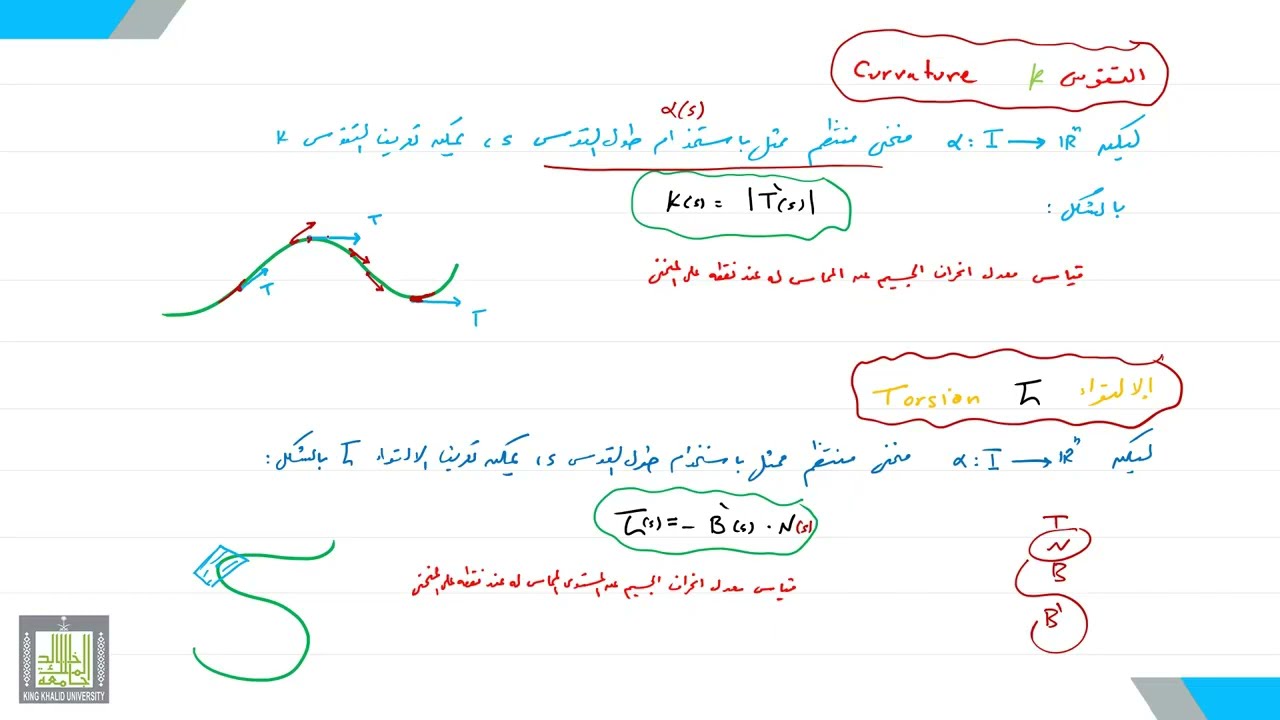 التقوس k Curvature
α(s)
ليكن α: I → ℝⁿ منحنى منتظم ممثل باستخدام طول القوس s، يمكن تعريف التقوس k
بالشكل :
k(s) = |T`(s)|
قياس معدل انحراف الجسيم عن المماس له عند نقطة على المنحنى
T
T
T
الالتواء τ Torsion
ليكن α: I → ℝⁿ منحنى منتظم ممثل باستخدام طول القوس s، يمكن تعريف الالتواء τ بالشكل:
τ(s) = - B`(s) · N(s)
قياس معدل انحراف الجسيم عن المستوى المماس له عند نقطة على المنحنى
T
N
B
B'
جامعة الملك خالد
KING KHALID UNIVERSITY